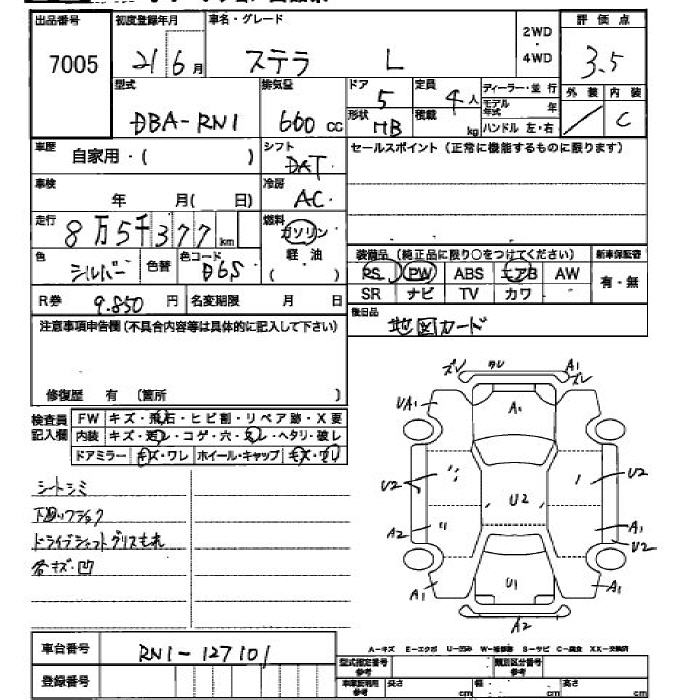 出品番号 初度登録年月 車名・グレード 2WD ・ 4WD 評価点
7005 21 6月 ステラ L 3.5
型式 排気量 ドア 定員 ディーラー・並行 外装 内装
DBA-RN1 660cc 5 4人 モデル年式 年 / C
形状 HB 積載 kg ハンドル 左・右
車歴 自家用・( ) シフト DAT セールスポイント(正常に機能するものに限ります)
車検 年 月( 日) 冷房 AC
走行 8万5千377km 燃料 ガソリン 軽油 ( )
色 シルバー 色替 色コード D6S
装備品(純正品に限り○をつけてください) 新車保証書
PS PW ABS エアB AW 有・無
SR ナビ TV カワ
R券 9.850円 名変期限 月 日
後日品 地図カード
注意事項申告欄(不具合内容等は具体的に記入して下さい)
修復歴 有 〔箇所 〕
検査員記入欄 FW キズ・飛石・ヒビ割・リペア跡・X要
内装 キズ・汚レ・コゲ・穴・スレ・ヘタリ・破レ
ドアミラー キズ・ワレ ホイール・キャップ キズ・ワレ
ズレ ワレ A1 ズレ
UA1 A1
U2 U2 U2
A2 A1 U2
A1 U1 A1
A2
シートシミ
下廻りサビ
ドライブシャフトグリスもれ
各キズ・凹
車台番号 RN1-127101
登録番号
A-キズ E-エクボ U-凹み W-補修跡 S-サビ C-腐食 XX-交換済
型式指定番号 参考 類別区分番号 参考
車庫証明用 参考 長さ cm 幅 cm 高さ cm